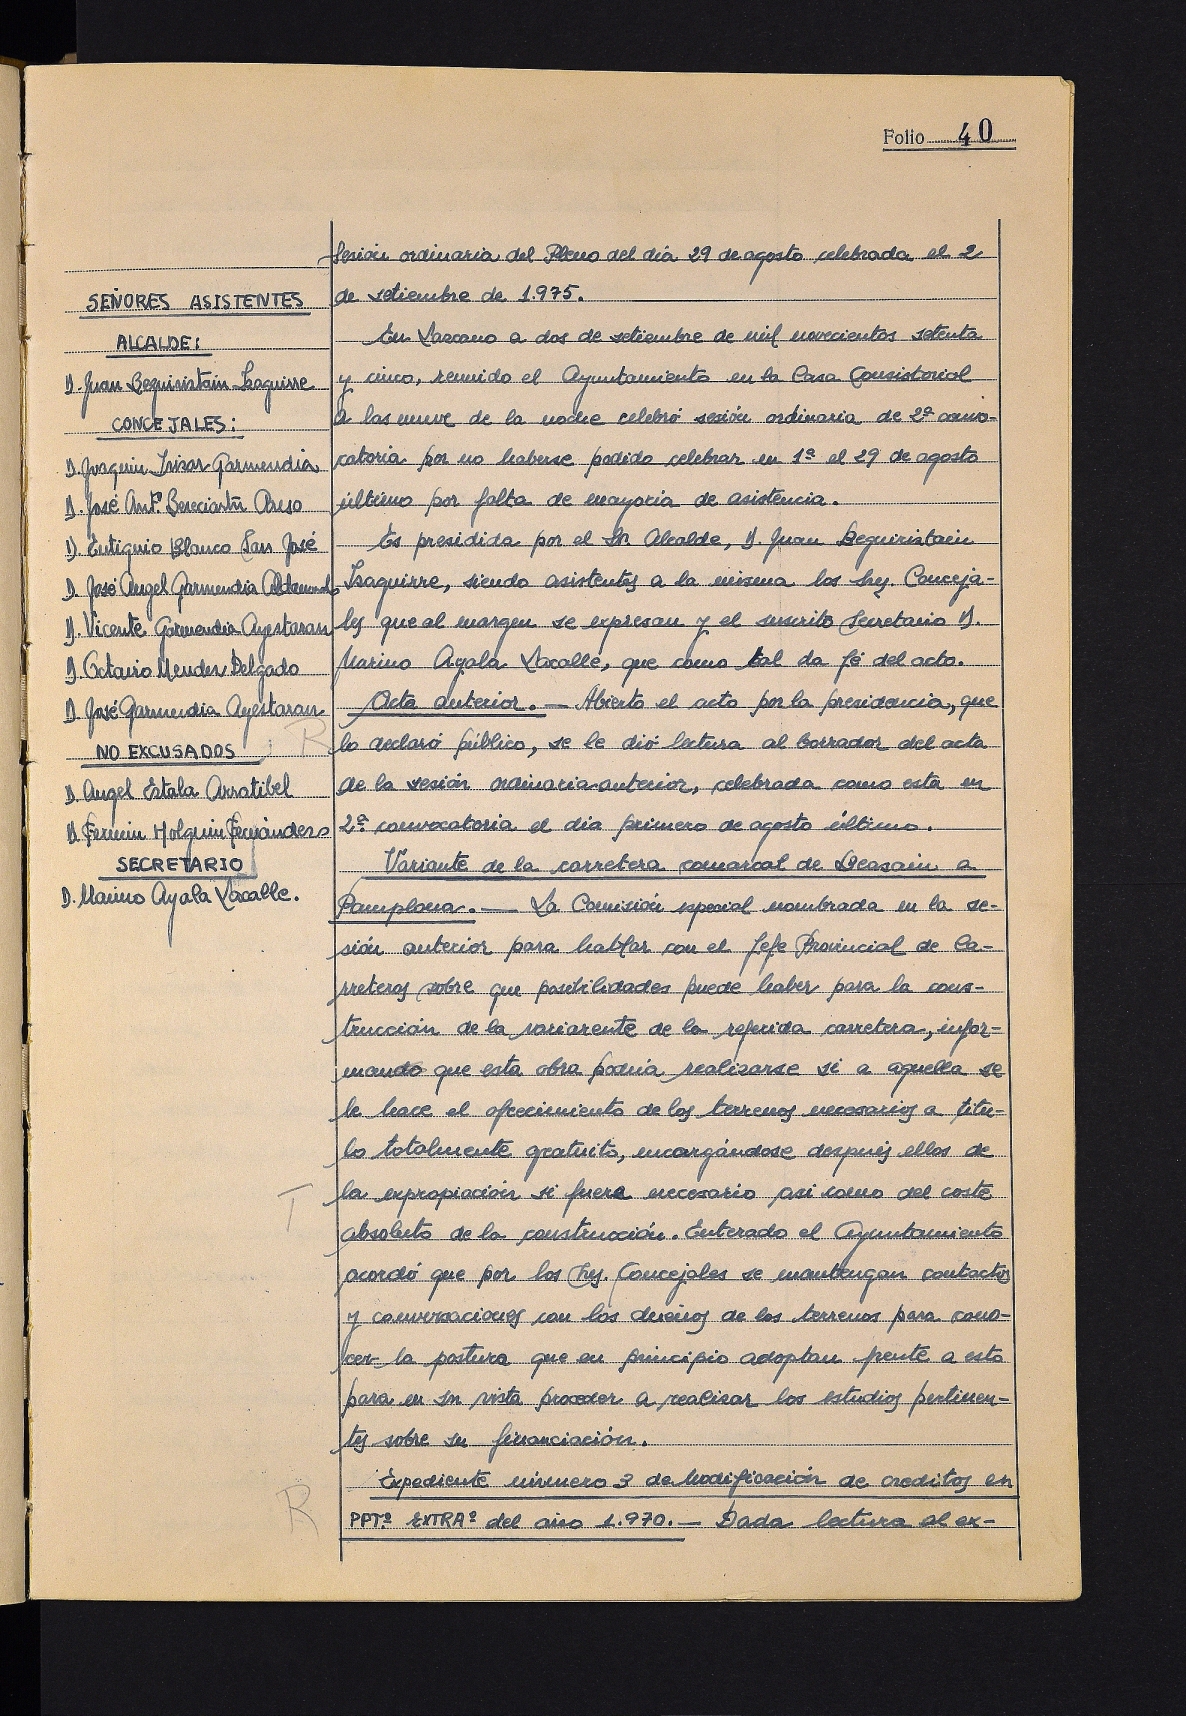 Folio 40
SEÑORES ASISTENTES
ALCALDE:
D. Juan Beguiristain Izaguirre
CONCEJALES:
D. Joaquin Irizar Garmendia
D. José Antº Bereciartu Areso
D. Eutiquio Blanco San José
D. José Angel Garmendia
D. Vicente Garmendia Ayestaran
D. Octavio Mendez Delgado
D. José Garmendia Ayestaran
NO EXCUSADOS
D. Angel Estala Arratibel
D. Fermin Holguin Fernández
SECRETARIO
D. Marino Ayala Lacalle.
Sesión ordinaria del Pleno del día 29 de agosto celebrada el 2
de setiembre de 1.975.
En Lazcano a dos de setiembre de mil novecientos setenta
y cinco, reunido el Ayuntamiento en la Casa Consistorial
a las nueve de la noche celebró sesión ordinaria de 2ª convo-
catoria por no haberse podido celebrar en 1ª el 29 de agosto
último por falta de mayoria de asistencia.
Es presidida por el Sr. Alcalde, D. Juan Beguiristain
Izaguirre, siendo asistentes a la misma los Srs. Conceja-
les que al margen se expresan y el suscrito Secretario D.
Marino Ayala Lacalle, que como tal da fé del acto.
Acta anterior. — Abierto el acto por la presidencia, que
lo declaró público, se le dió lectura al borrador del acta
de la sesión ordinaria anterior, celebrada como esta en
2ª convocatoria el dia primero de agosto último.
Variante de la carretera comarcal de Beasain a
Pamplona. — La Comisión especial nombrada en la se-
sión anterior para hablar con el Jefe Provincial de Ca-
rreteras sobre que posibilidades puede haber para la cons-
trucción de la variarente de la referida carretera, infor-
mando que esta obra podria realizarse si a aquella se
le hace el ofrecimiento de los terrenos necesarios a titu-
lo totalmente gratuito, encargándose después ellos de
la expropiación si fuera necesario asi como del coste
absoluto de la construcción. Enterado el Ayuntamiento
acordó que por los Srs. Concejales se mantengan contactos
y conversaciones con los dueños de los terrenos para cono-
cer la postura que en principio adoptan frente a esto
para en su vista proceder a realizar los estudios pertinen-
tes sobre su financiación.
Expediente número 3 de Modificación de creditos en
PPTº EXTRAº del año 1.970. — Dada lectura al ex-
R
T
R